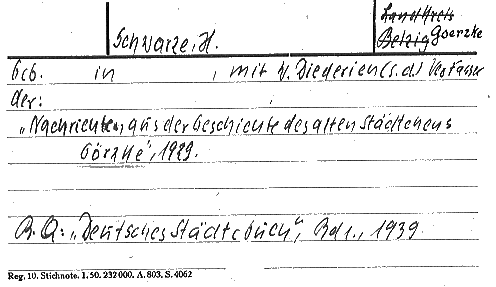 Landkreis
Schwarze, H. Belzig Goerzke
Geb. in , mit W. Diederien (s.d.) Verfasser
der: ,
„Nachrichten aus der Geschichte des alten Städtchens
Görzke", 1929.
B.Q.: „Deutsches Städtebuch", Bd 1., 1939
Reg. 10. Stichnote. 1. 50. 232000. A. 803. S. 4062